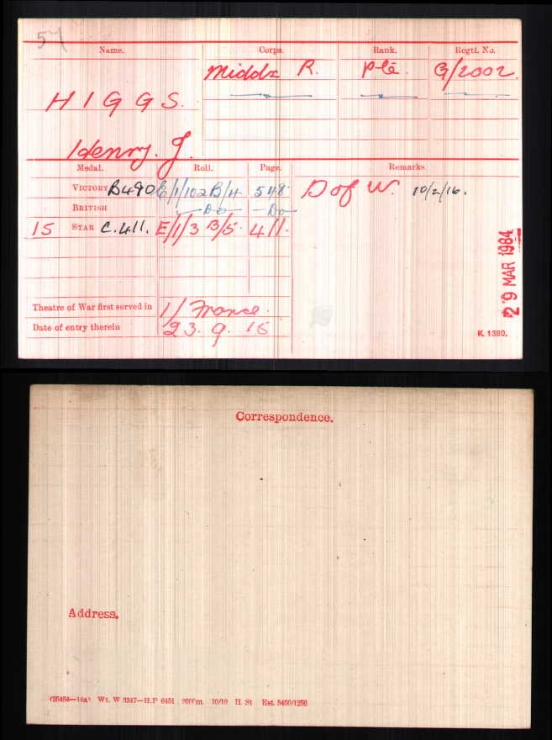 57
Name. Corps. Rank. Regtl. No.
Middx R. Pte. G/2002.
HIGGS.
Henry. J.
Medal. Roll. Page. Remarks.
VICTORY B490 E/1/102B/4 548 D of W. 10/2/16.
BRITISH -Do- -Do-
15 STAR C.411. E/1/3 B/5. 411.
29 MAR 1984
Theatre of War first served in 1/ France.
Date of entry therein 23. 9. 15
K. 1380.
Correspondence.
Address.
Wt. W 5347—H.P. 200m 10/19 H. St